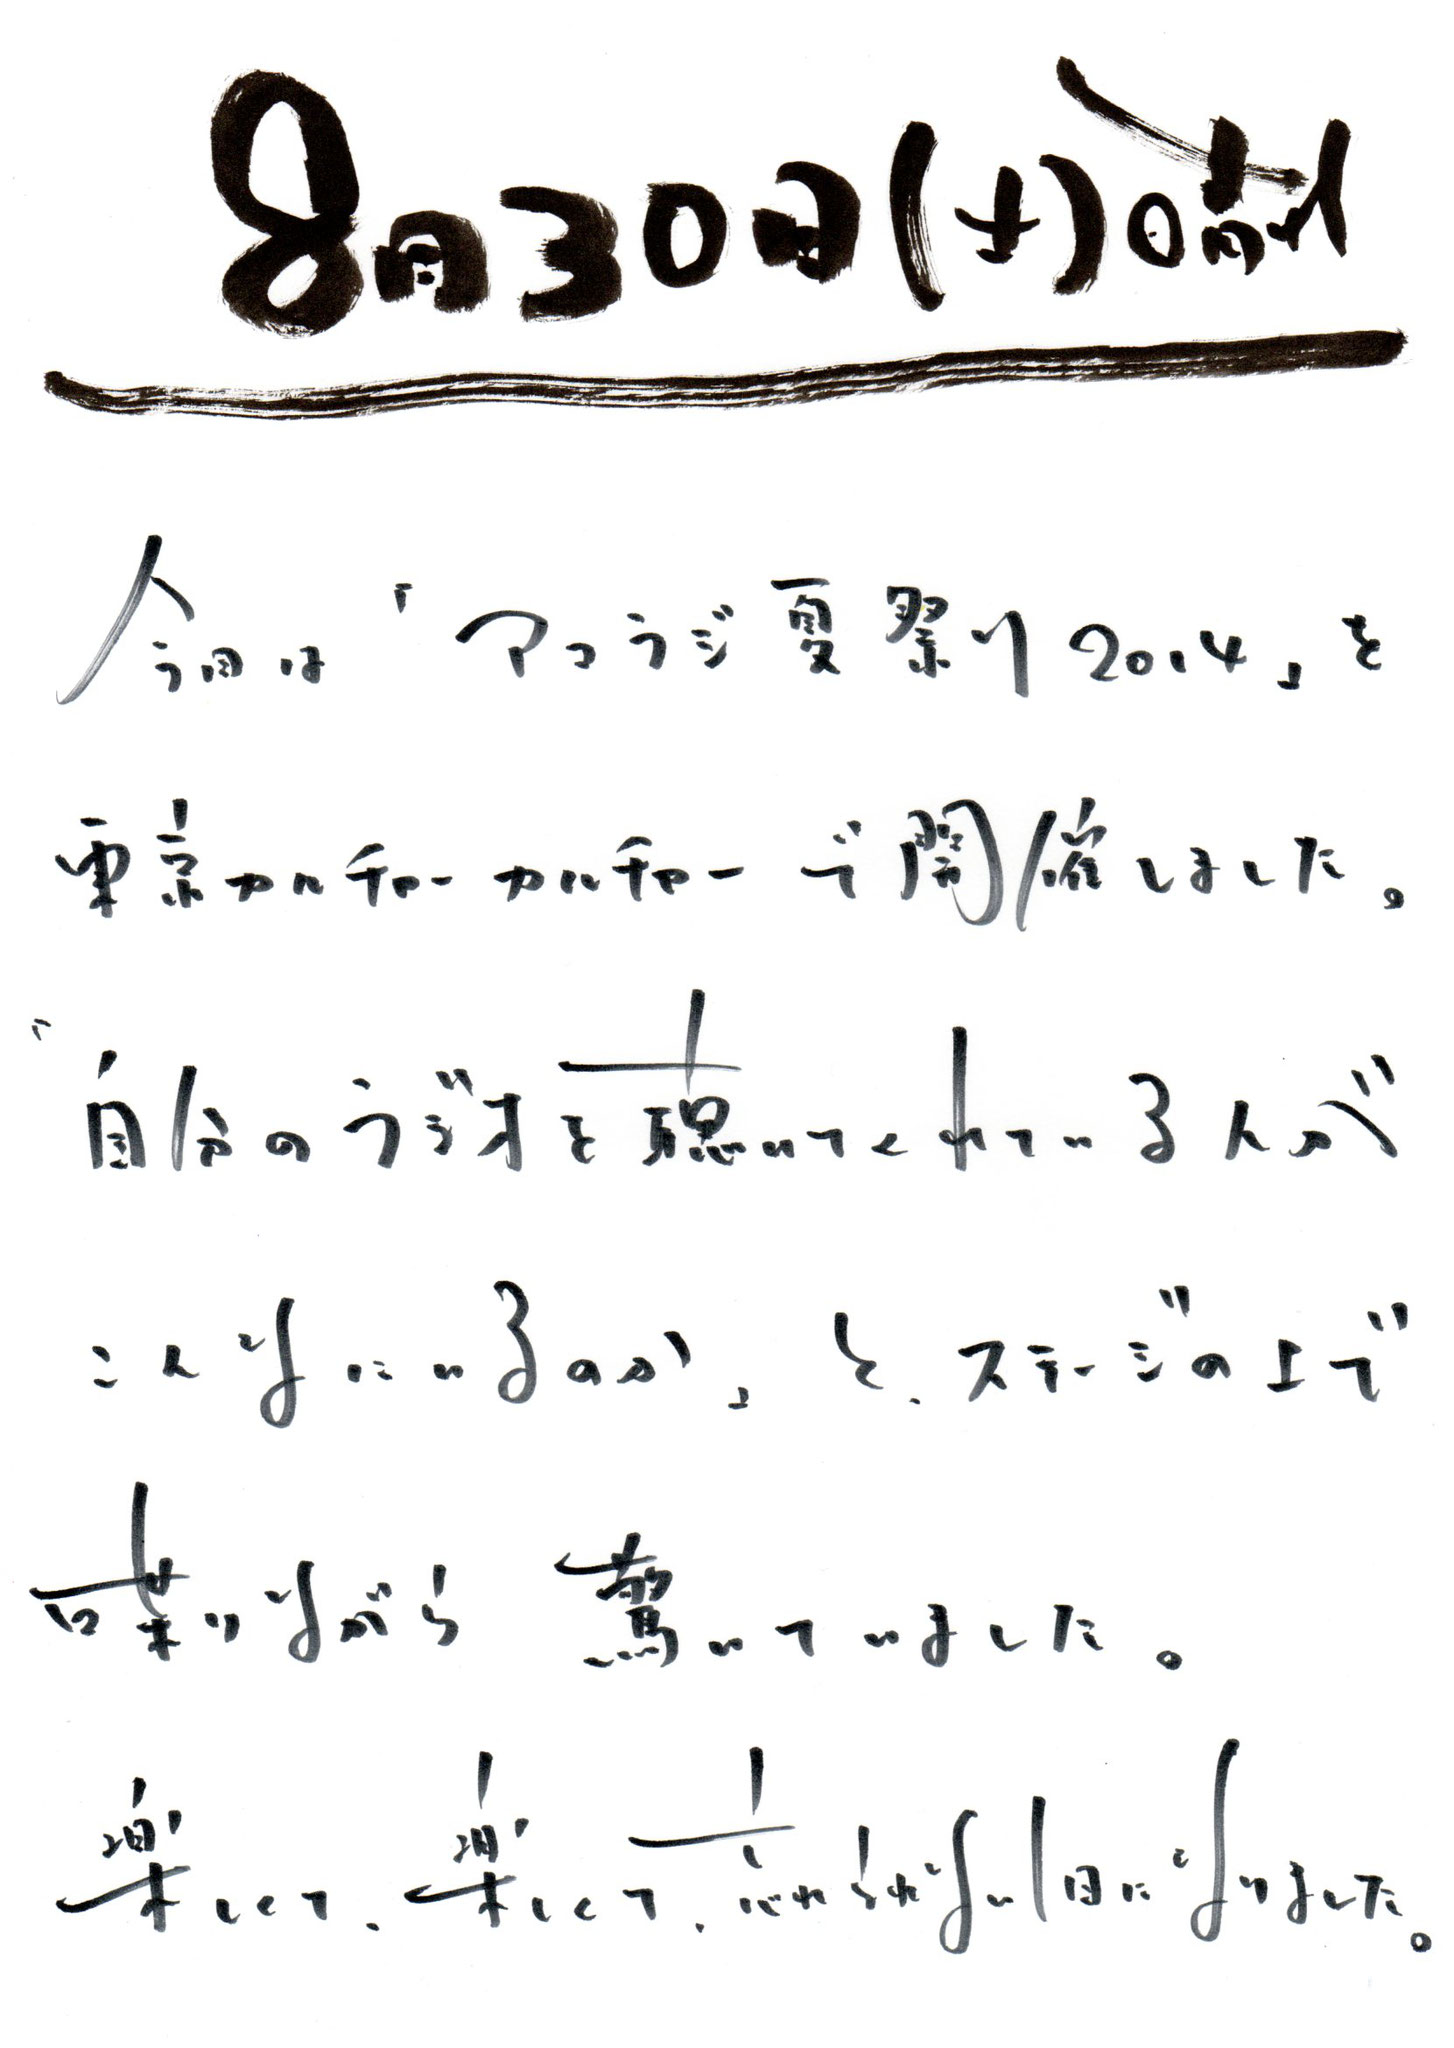 8月30日(土)晴れ
今回は「アコラジ夏祭り2014」を
東京カルチャーカルチャーで開催しました。
「自分のラジオを聴いてくれている人が
こんなにいるのか」と、ステージの上で
喋りながら驚いていました。
楽しくて、楽しくて、忘れられない1日になりました。